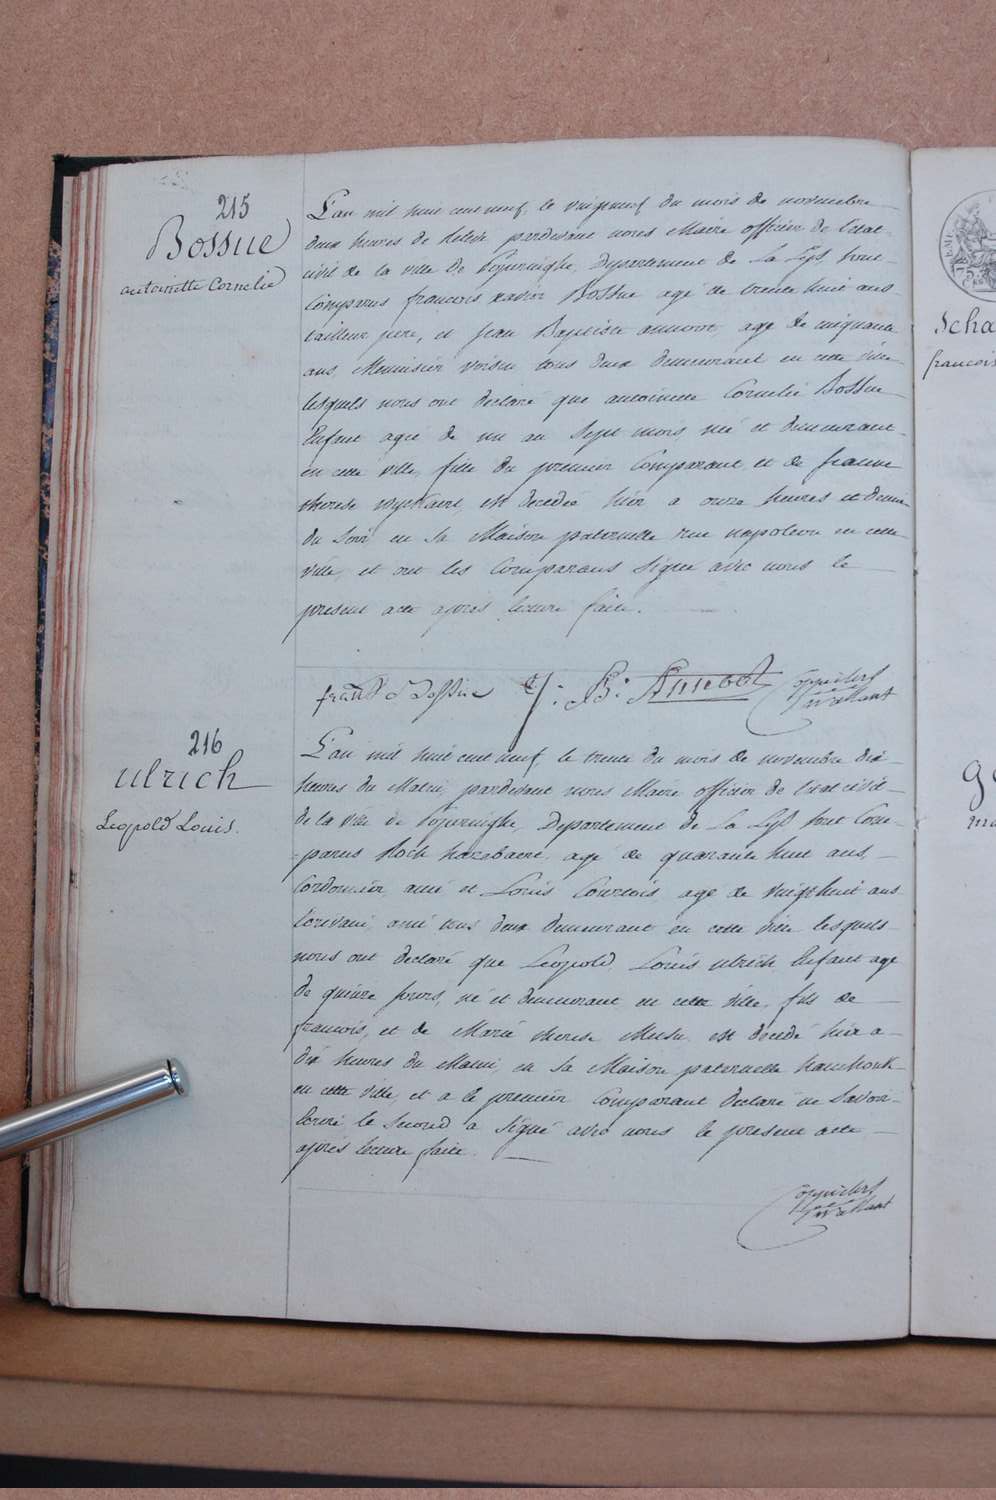 215
Bossue
antoinette Cornelie
L'an mil huit cent neuf, le vingtneuf du mois de novembre
deux heures de relevée pardevant nous Maire officier de l'etat
civil de la ville de Poperinghe, Departement de La Lys, sont
Comparus francois xavier Bossue agé de trente huit ans
tailleur pere, et Jean Baptiste annoot, age de cinquante
ans, Menuisier voisin tous deux demeurant en cette ville
lesquels nous ont declaré que antoinette Cornelie Bossue
Enfant agée de un an Sept mois, née et demeurant
en cette ville, fille du premier Comparant et de jeanne
therese est decedée hier a onze heures et demie
du Soir, en Sa Maison paternelle rue napoleon en cette
ville, et ont les Comparans Signer avec nous le
present acte après lecture faite.
J: B: Annoot
216
Ulrich
Leopold Louis.
L'an mil huit cent neuf, le trente du mois de novembre dix
heures du Matin, pardevant nous Maire officier de l'etat civil
de la ville de Poperinghe, Departement de La Lys sont Com-
-parus Roch agé de quarante huit ans,
Cordonnier, ami et Louis Courtois, age de vingthuit ans
Ecrivain, ami tous deux demeurant en cette ville lesquels
nous ont declaré que Leopold Louis ulrich Enfant age
de quinze jours, né et demeurant en cette ville, fils de
francois, et de Marie therese est decedé hier a
dix heures du Matin, en Sa Maison paternelle
en cette ville, et a le premier Comparant declaré ne Savoir
Ecrire le Second a Signé avec nous le present acte
après lecture faite.
francois